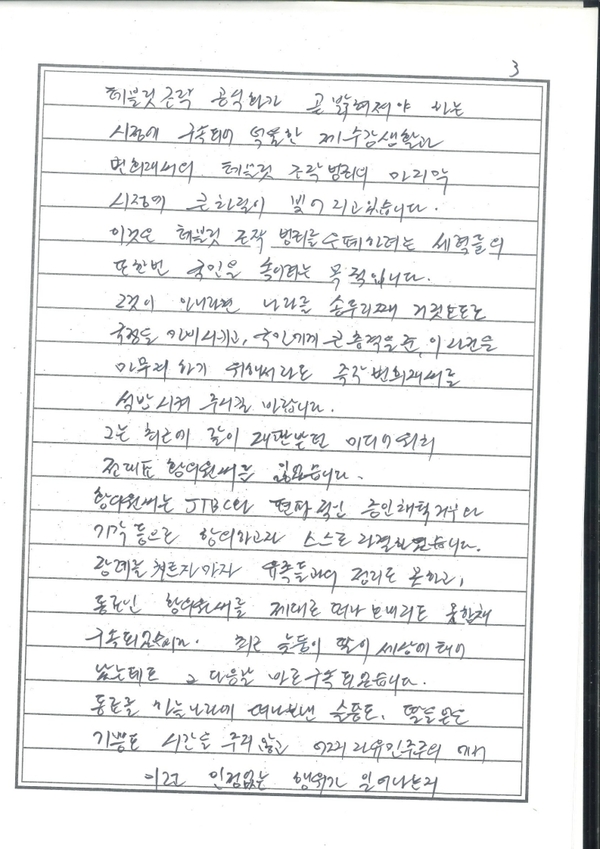 3
테블릿 조작 공식화가 곧 밝혀져야 하는
시점에 구속되어 억울한 제 수감생활과
변희재씨의 테블릿 조작 범죄의 마지막
시점에 큰 차질이 빚어지고 있습니다.
이것은 테블릿 조작 범죄를 은폐하려는 세력들의
또한번 국민을 속이려는 목적입니다.
그것이 아니라면 나라를 송두리째 거짓으로
국정을 마비시키고, 국민에게 큰 충격을 준, 이 사건을
마무리 하기 위해서라도 즉각 변희재씨를
석방시켜 주시길 바랍니다.
그는 최근에 같이 재판받던 미디어워치
전대표 황의원씨를 잃었습니다.
황의원씨는 JTBC와 편파적인 증인채택거부와
기각 등으로 항의하고자 스스로 자결하였습니다.
장례를 치르자마자 유족들과의 정리도 못하고,
동료인 황의원씨를 제대로 떠나 보내지도 못한채
구속되었습니다. 최근 늦둥이 딸이 세상에 태어
났는데도 그 다음날 바로 구속되었습니다.
동료를 하늘나라에 떠나보낸 슬픔도, 딸을 얻은
기쁨도 시간을 주지 않고 어찌 자유민주주의에서
이런 인정없는 행위가 일어나는지